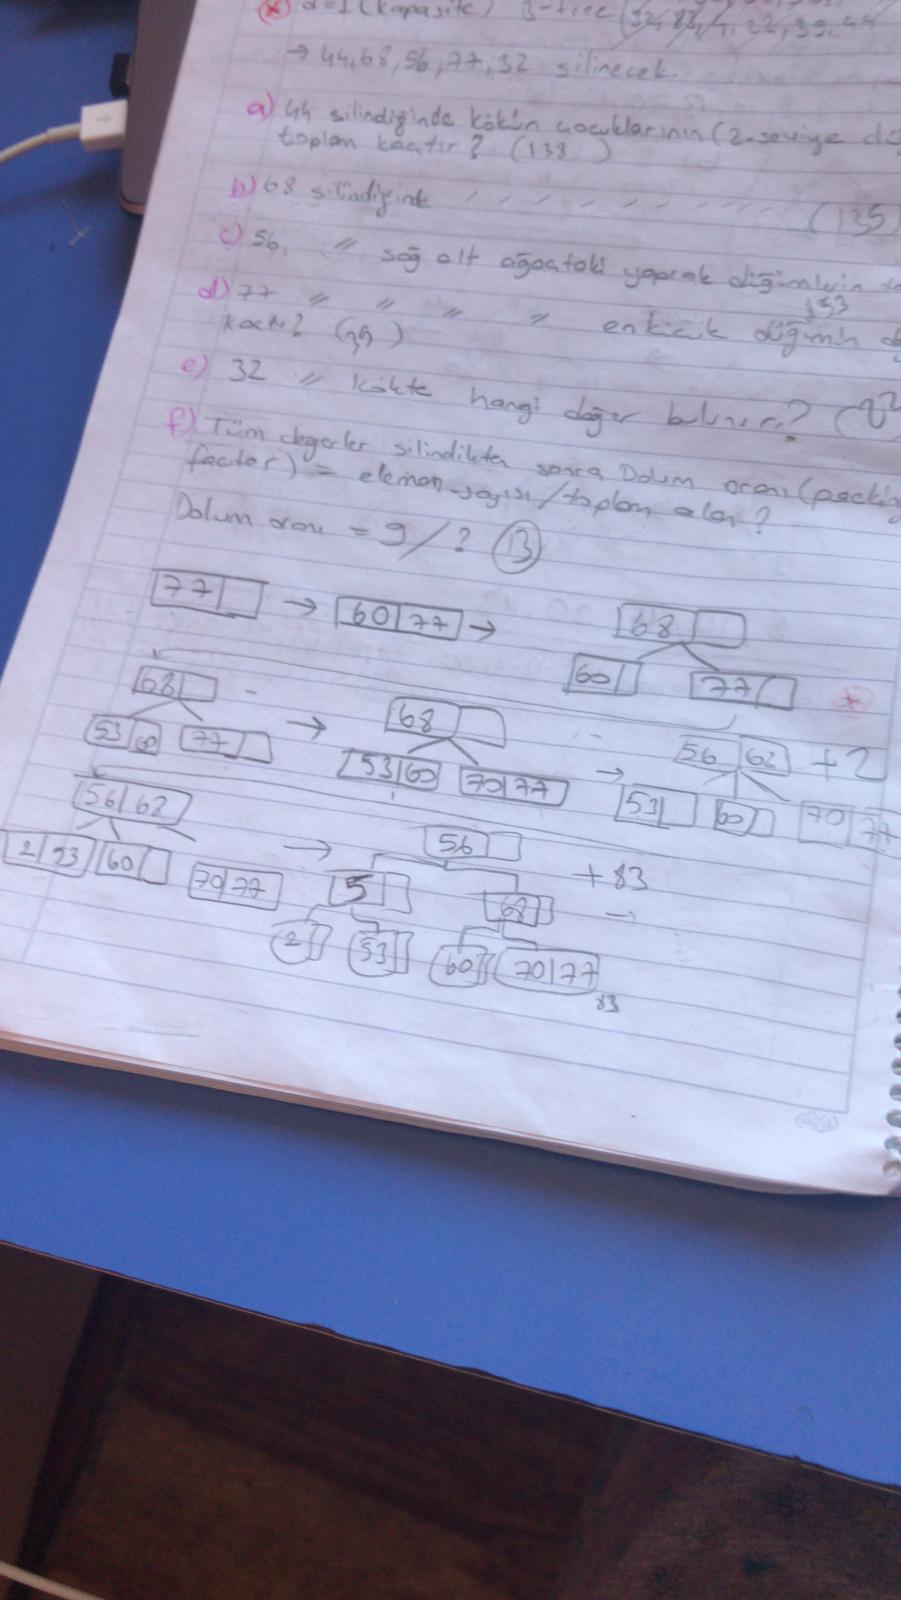 d=1 (kapasite) B-tree (32, 83, 4, 22, 39, 44
→ 44, 68, 56, 77, 32 silinecek.
a) 44 silindiğinde kökün çocuklarının (2. seviye dü
toplam kaçtır? (138)
b) 68 silindiğinde " " " " " (135)
c) 56, " sağ alt ağaçtaki yaprak düğümlerin
153
d) 77 " " " " en küçük düğümün d
kaçtır? (39)
e) 32 " kökte hangi değer bulunur?
f) Tüm değerler silindikten sonra Dolum oranı (packing
factor) = eleman sayısı / toplam alan?
Dolum oranı = 9/? (13)
77 → 60 77 → 68
60 77
68 → 68 → 56 62 + 2
53 60 77 53 60 70 77 53 60 70 77
56 62 → 56 + 83
2 53 60 70 77 5 68 →
2 53 60 70 77
83